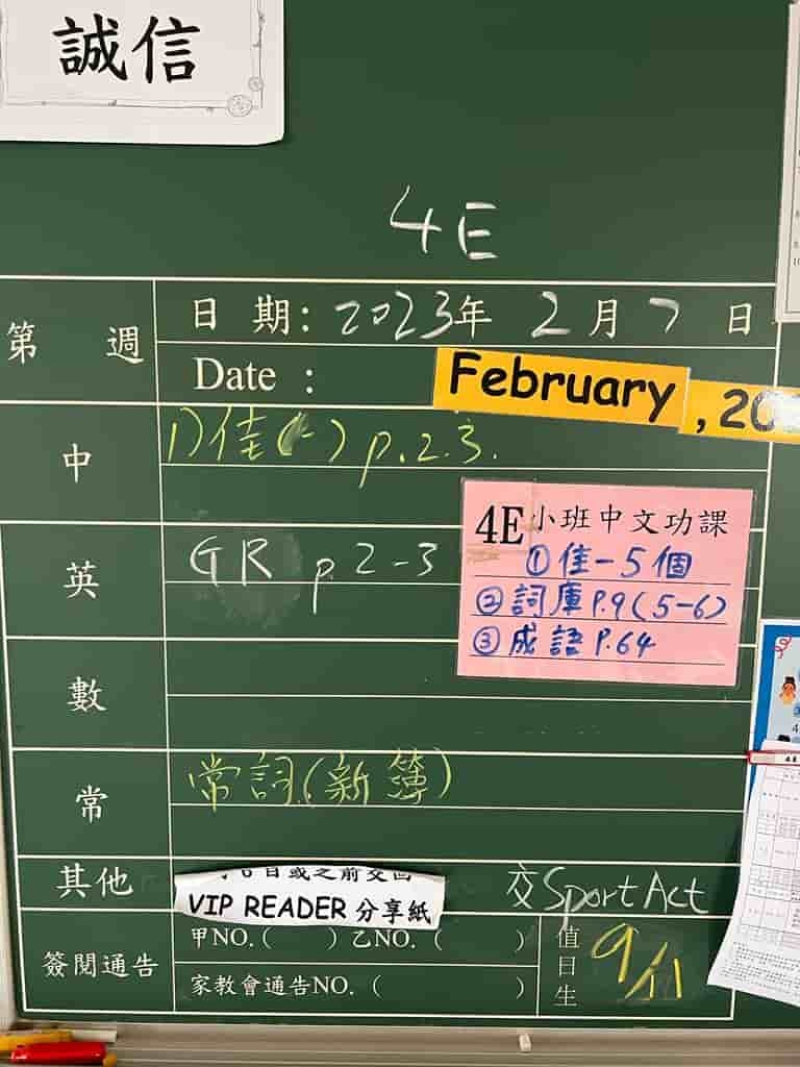 誠信
4E
第 週
日 期: 2023年 2月 7 日
Date :
February, 20
中
1)佳(一) p.2.3.
英
GR p 2-3
4E小班中文功課
①佳一5個
②詞庫P.9(5-6)
③成語P.64
數
常
常詞(新簿)
其他
6日或之前交回
VIP READER 分享紙
交Sport Act
簽閱通告
甲NO.( ) 乙NO. ( )
家教會通告NO. ( )
值日生
9/11